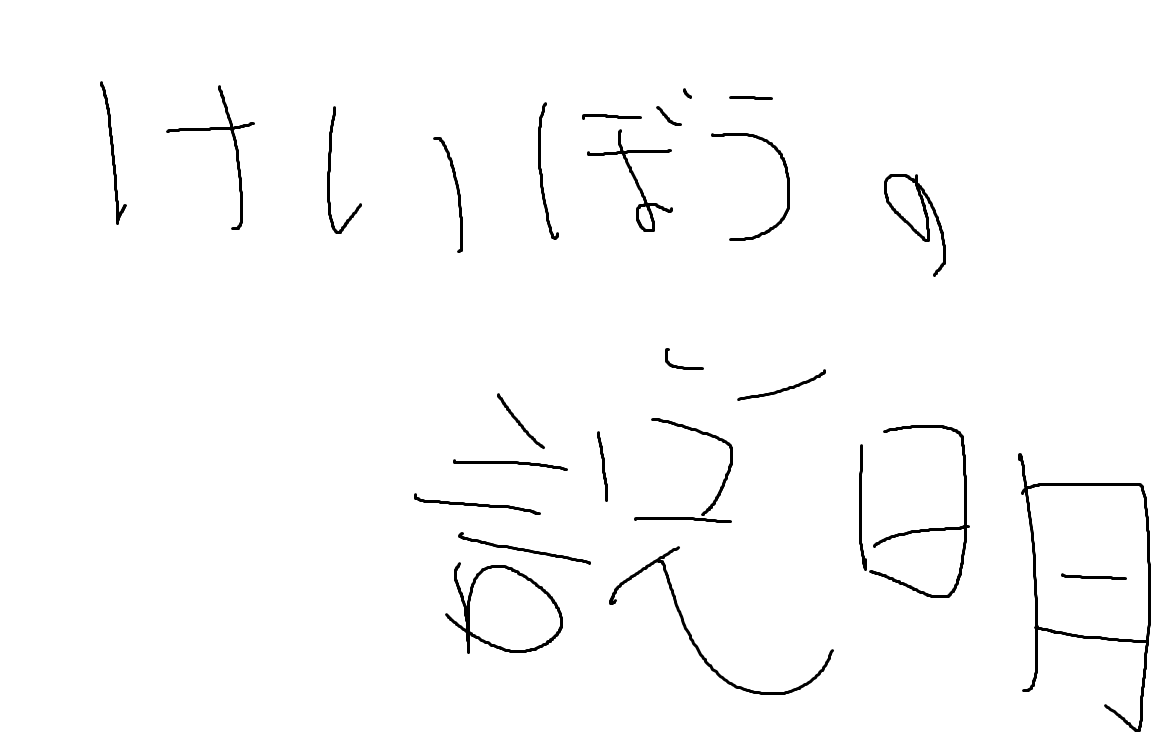 けいぼうの
説明